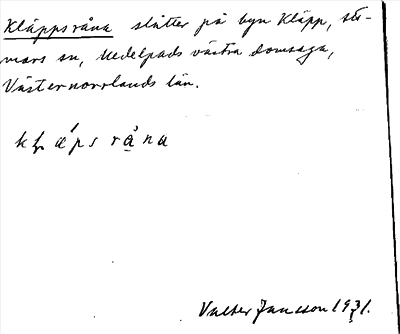 Kläppsråna slåtter på byn Kläpp, Stö-
mars sn, Medelpads västra domsaga,
Västernorrlands län.
Valter Jansson 1931.